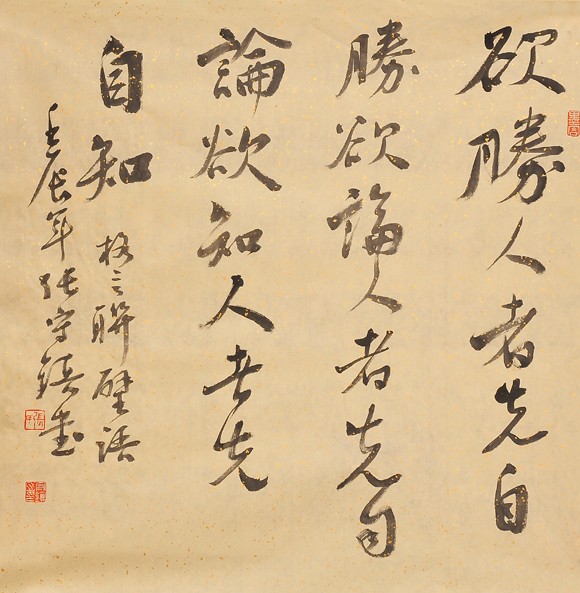 欲勝人者先自
勝欲論人者先自
論欲知人者先
自知
格言聯璧語
壬辰年張守鎮書